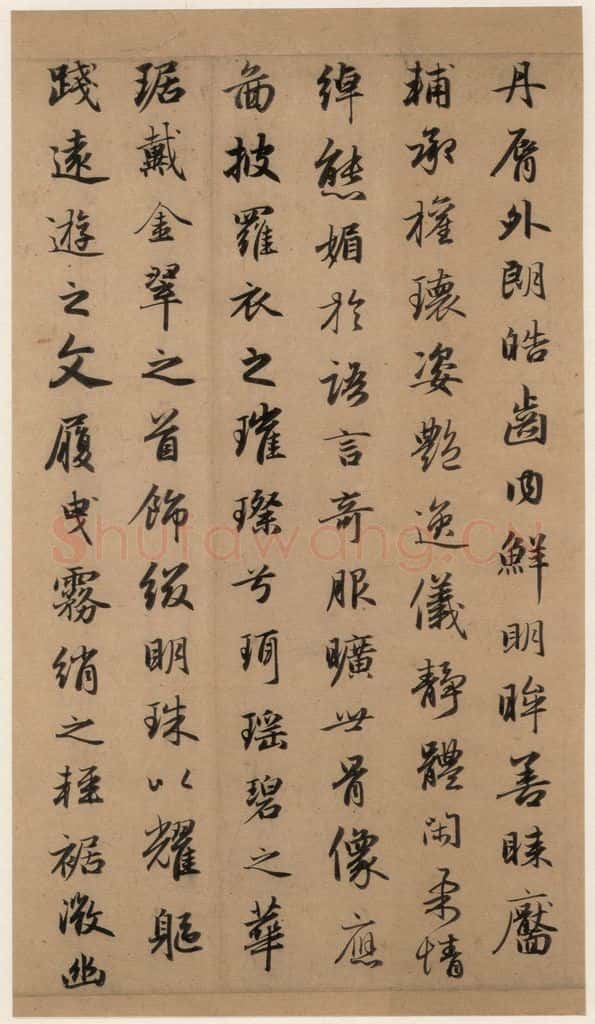 丹脣外朗皓齒内鮮明眸善睞靨
輔承權瓌姿艷逸儀靜體閑柔情
綽態媚於語言奇服曠世骨像應
啚披羅衣之璀璨兮珥瑶碧之華
琚戴金翠之首飾綴明珠以耀軀
踐遠遊之文履曳霧綃之輕裾微幽
shufawang.CN